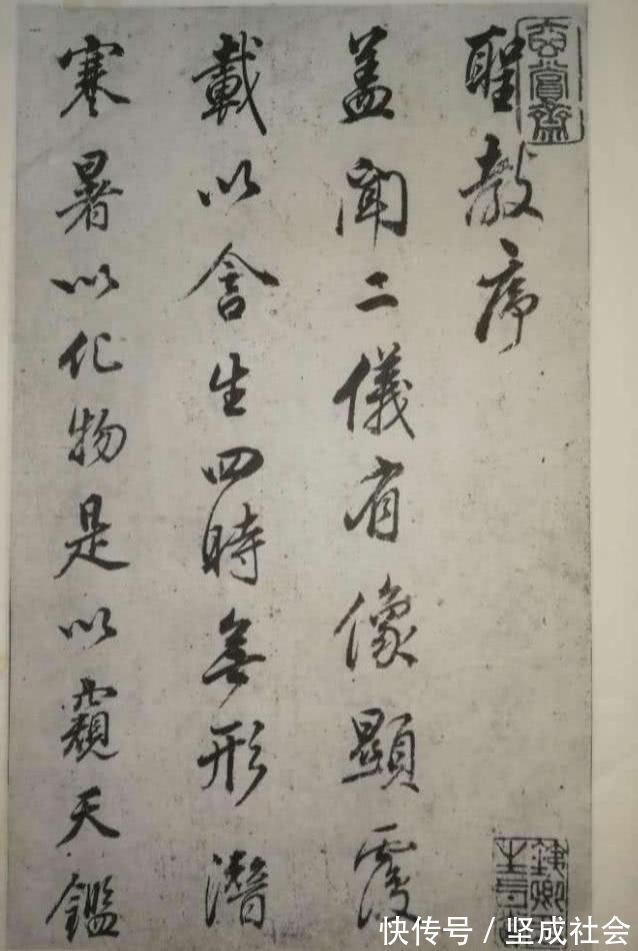 聖教序
蓋聞二儀有像顯覆
載以含生四時無形潛
寒暑以化物是以窺天鑑
真賞齋
快传号 / 坚成社会